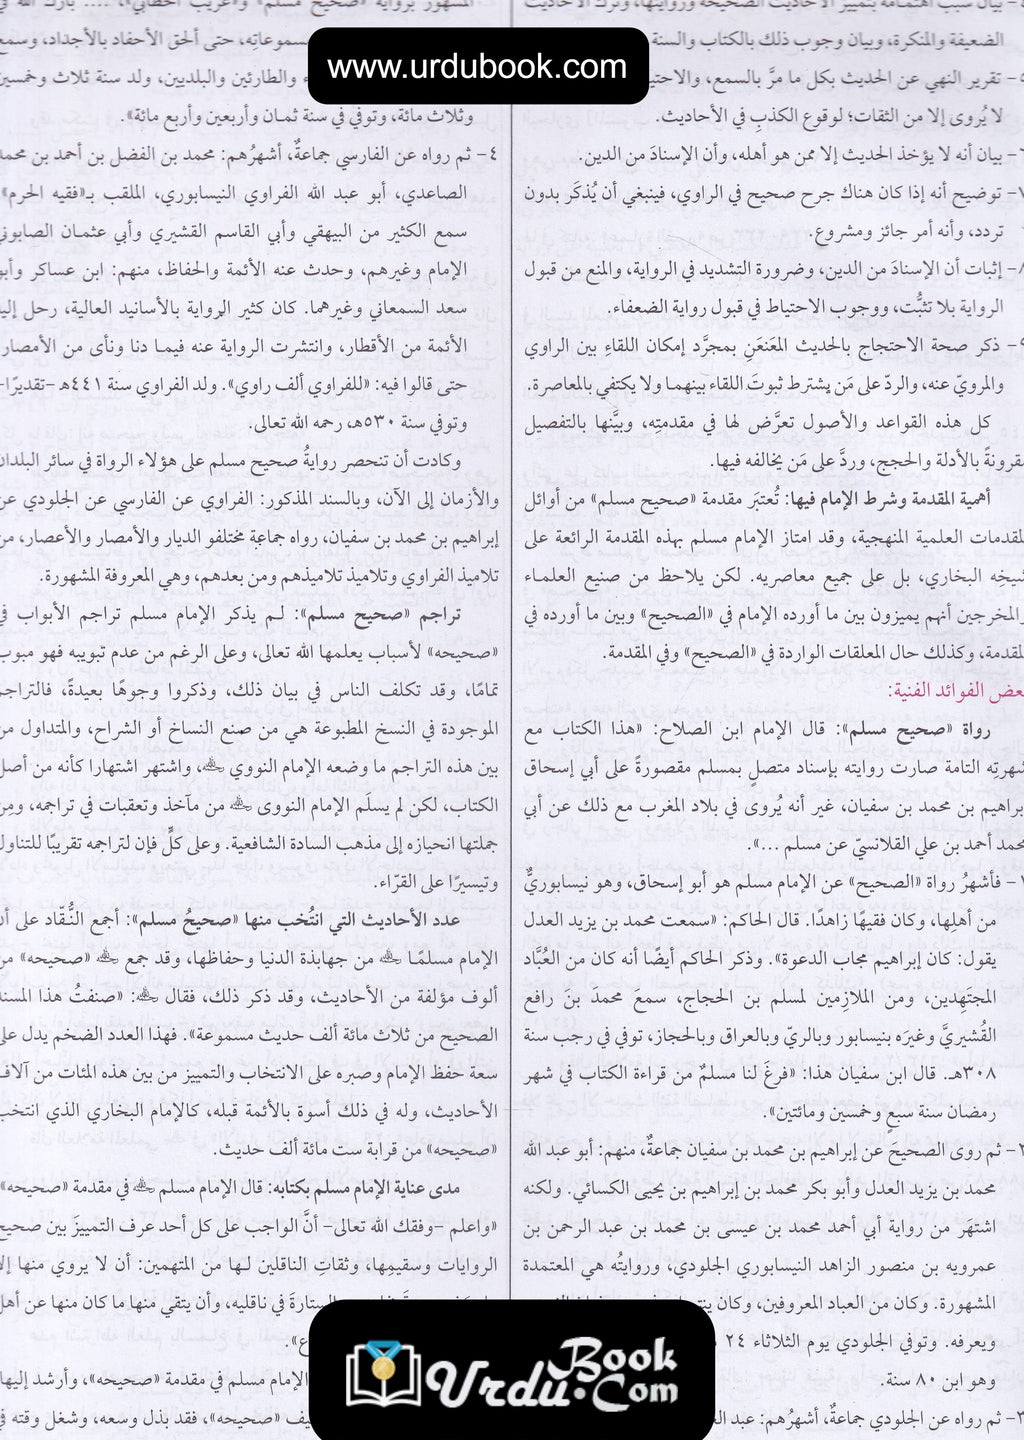 www.urdubook.com
الضعيفة والمنكرة، وبيان وجوب ذلك بالكتاب والسنة
٥- تقرير النهي عن الحديث بكل ما مرَّ بالسمع،
لا يُروى إلا من الثقات؛ لوقوع الكذبِ في الأحاديث.
٦- بيان أنه لا يؤخذ الحديث إلا ممن هو أهله، وأن الإسنادَ من الدين.
٧- توضيح أنه إذا كان هناك جرح صحيح في الراوي، فينبغي أن يُذكَر بدون
تردد، وأنه أمر جائز ومشروع.
٨- إثبات أن الإسنادَ من الدين، وضرورة التشديد في الرواية، والمنع من قبول
الرواية بلا تثبُّت، ووجوب الاحتياط في قبول رواية الضعفاء.
٩- ذكر صحة الاحتجاج بالحديث المعَنعَنِ بمجرَّد إمكان اللقاءِ بين الراوي
والمرويّ عنه، والردّ على مَن يشترط ثبوتَ اللقاء بينهما ولا يكتفي بالمعاصرة.
كل هذه القواعد والأصول تعرَّض لها في مقدمتِه، وبيَّنها بالتفصيل
مقرونةً بالأدلة والحجج، وردَّ على مَن يخالفه فيها.
أهمية المقدمة وشرط الإمام فيها: تُعتبَر مقدمة «صحيح مسلم» من أوائل
المقدمات العلمية المنهجية، وقد امتاز الإمام مسلم بهذه المقدمة الرائعة على
شيخِه البخاري، بل على جميع معاصريه. لكن يلاحظ من صنيع العلماء
والمخرجين أنهم يميزون بين ما أورده الإمام في «الصحيح» وبين ما أورده في
المقدمة، وكذلك حال المعلقات الواردة في «الصحيح» وفي المقدمة.
بعض الفوائد الفنية:
رواة «صحيح مسلم»: قال الإمام ابن الصلاح: «هذا الكتاب مع
شهرتِه التامة صارت روايته بإسناد متصلٍ بمسلم مقصورةً على أبي إسحاق
إبراهيم بن محمد بن سفيان، غير أنه يُروى في بلاد المغرب مع ذلك عن أبي
محمد أحمد بن علي القلانسيّ عن مسلم ...».
١- فأشهرُ رواة «الصحيح» عن الإمام مسلم هو أبو إسحاق، وهو نيسابوريٌّ
من أهلها، وكان فقيهًا زاهدًا. قال الحاكم: «سمعت محمد بن يزيد العدل
يقول: كان إبراهيم مجاب الدعوة». وذكر الحاكم أيضًا أنه كان من العُبَّاد
المجتَهِدين، ومن الملازِمين لمسلم بن الحجاج، سمعَ محمدَ بنَ رافع
القُشيريَّ وغيرَه بنيسابور وبالريّ وبالعراق وبالحجاز، توفي في رجب سنة
٣٠٨هـ. قال ابن سفيان هذا: «فرغَ لنا مسلمٌ من قراءة الكتاب في شهر
رمضان سنة سبعٍ وخمسين ومائتين».
٢- ثم روى الصحيحَ عن إبراهيم بن محمد بن سفيان جماعةٌ، منهم: أبو عبد الله
محمد بن يزيد العدل وأبو بكر محمد بن إبراهيم بن يحيى الكسائي. ولكنه
اشتهَر من رواية أبي أحمد محمد بن عيسى بن محمد بن عبد الرحمن بن
عمرويه بن منصور الزاهد النيسابوري الجلودي، وروايتُه هي المعتمدة
المشهورة. وكان من العباد المعروفين، وكان
ويعرفه. وتوفي الجلودي يوم الثلاثاء ٢٤
وهو ابن ٨٠ سنة.
٣- ثم رواه عن الجلودي جماعةٌ، أشهرُهم: عبد
المشهور برواية «صحيح مسلم» و«غريب الخطابي»،
سموعاتِه، حتى ألحق الأحفاد بالأجداد، وسمع
والطارئين والبلديين، ولد سنة ثلاث وخمسين
وثلاث مائة، وتوفي في سنة ثمان وأربعين وأربع مائة».
٤- ثم رواه عن الفارسي جماعةٌ، أشهرُهم: محمد بن الفضل بن أحمد بن محمد
الصاعدي، أبو عبد الله الفراوي النيسابوري، الملقب بـ«فقيه الحرم»
سمع الكثير من البيهقي وأبي القاسم القشيري وأبي عثمان الصابوني
الإمام وغيرهم، وحدث عنه الأئمة والحفاظ، منهم: ابن عساكر وأبو
سعد السمعاني وغيرهما. كان كثير الرواية بالأسانيد العالية، رحل إليه
الأئمة من الأقطار، وانتشرت الرواية عنه فيما دنا ونأى من الأمصار
حتى قالوا فيه: «للفراوي ألف راوي». ولد الفراوي سنة ٤٤١هـ -تقديرًا-
وتوفي سنة ٥٣٠هـ، رحمه الله تعالى.
وكادت أن تنحصر روايةُ صحيح مسلم على هؤلاء الرواة في سائر البلدان
والأزمان إلى الآن، وبالسند المذكور: الفراوي عن الفارسي عن الجلودي عن
إبراهيم بن محمد بن سفيان، رواه جماعة مختلفو الديار والأمصار والأعصار، من
تلاميذ الفراوي وتلاميذ تلاميذهم ومن بعدهم، وهي المعروفة المشهورة.
تراجم «صحيح مسلم»: لم يذكر الإمام مسلم تراجم الأبواب في
«صحيحه» لأسباب يعلمها الله تعالى، وعلى الرغم من عدم تبويبه فهو مبوب
تمامًا، وقد تكلف الناس في بيان ذلك، وذكروا وجوهًا بعيدةً، فالتراجم
الموجودة في النسخ المطبوعة هي من صنع النساخ أو الشراح، والمتداول من
بين هذه التراجم ما وضعه الإمام النووي ﵀، واشتهر اشتهارا كأنه من أصل
الكتاب، لكن لم يسلَم الإمام النووى ﵀ من مآخذ وتعقبات في تراجمه، ومِن
جملتها انحيازه إلى مذهب السادة الشافعية. وعلى كلٍّ فإن لتراجمه تقريبًا للتناول
وتيسيرًا على القرّاء.
عدد الأحاديث التي انتُخب منها «صحيحُ مسلم»: أجمع النُّقّاد على أن
الإمام مسلمًا ﵀ من جهابذة الدنيا وحفاظها، وقد جمع ﵀ «صحيحه» من
ألوف مؤلفة من الأحاديث، وقد ذكر ذلك، فقال ﵀: «صنفتُ هذا المسند
الصحيح من ثلاث مائة ألف حديث مسموعة». فهذا العدد الضخم يدل على
سعة حفظ الإمام وصبره على الانتخاب والتمييز من بين هذه المئات من آلاف
الأحاديث، وله في ذلك أسوة بالأئمة قبله، كالإمام البخاري الذي انتخب
«صحيحه» من قرابة ست مائة ألف حديث.
مدى عناية الإمام مسلم بكتابه: قال الإمام مسلم ﵀ في مقدمة «صحيحه»
«واعلم -وفقك الله تعالى- أنَّ الواجب على كل أحد عرف التمييزَ بين صحيح
الروايات وسقيمِها، وثقاتِ الناقلين لها من المتهمين: أن لا يروي منها إلا
الستارةَ في ناقليه، وأن يتقي منها ما كان منها عن أهل
الإمام مسلم في مقدمة «صحيحه»، وأرشد إليها
«صحيحه»، فقد بذل وسعه، وشغل وقته في
UrduBook.Com